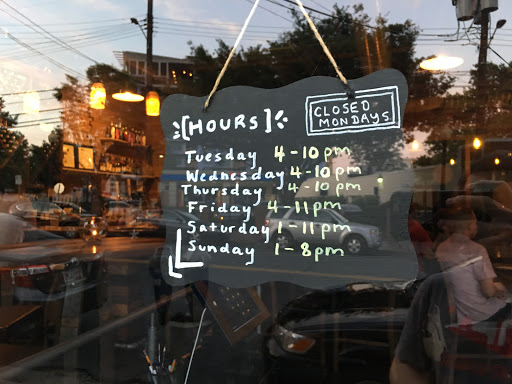 [HOURS]
CLOSED
MONDAYS
Tuesday 4-10pm
Wednesday 4-10pm
Thursday 4-10pm
Friday 4-11pm
Saturday 1-11pm
Sunday 1-8pm